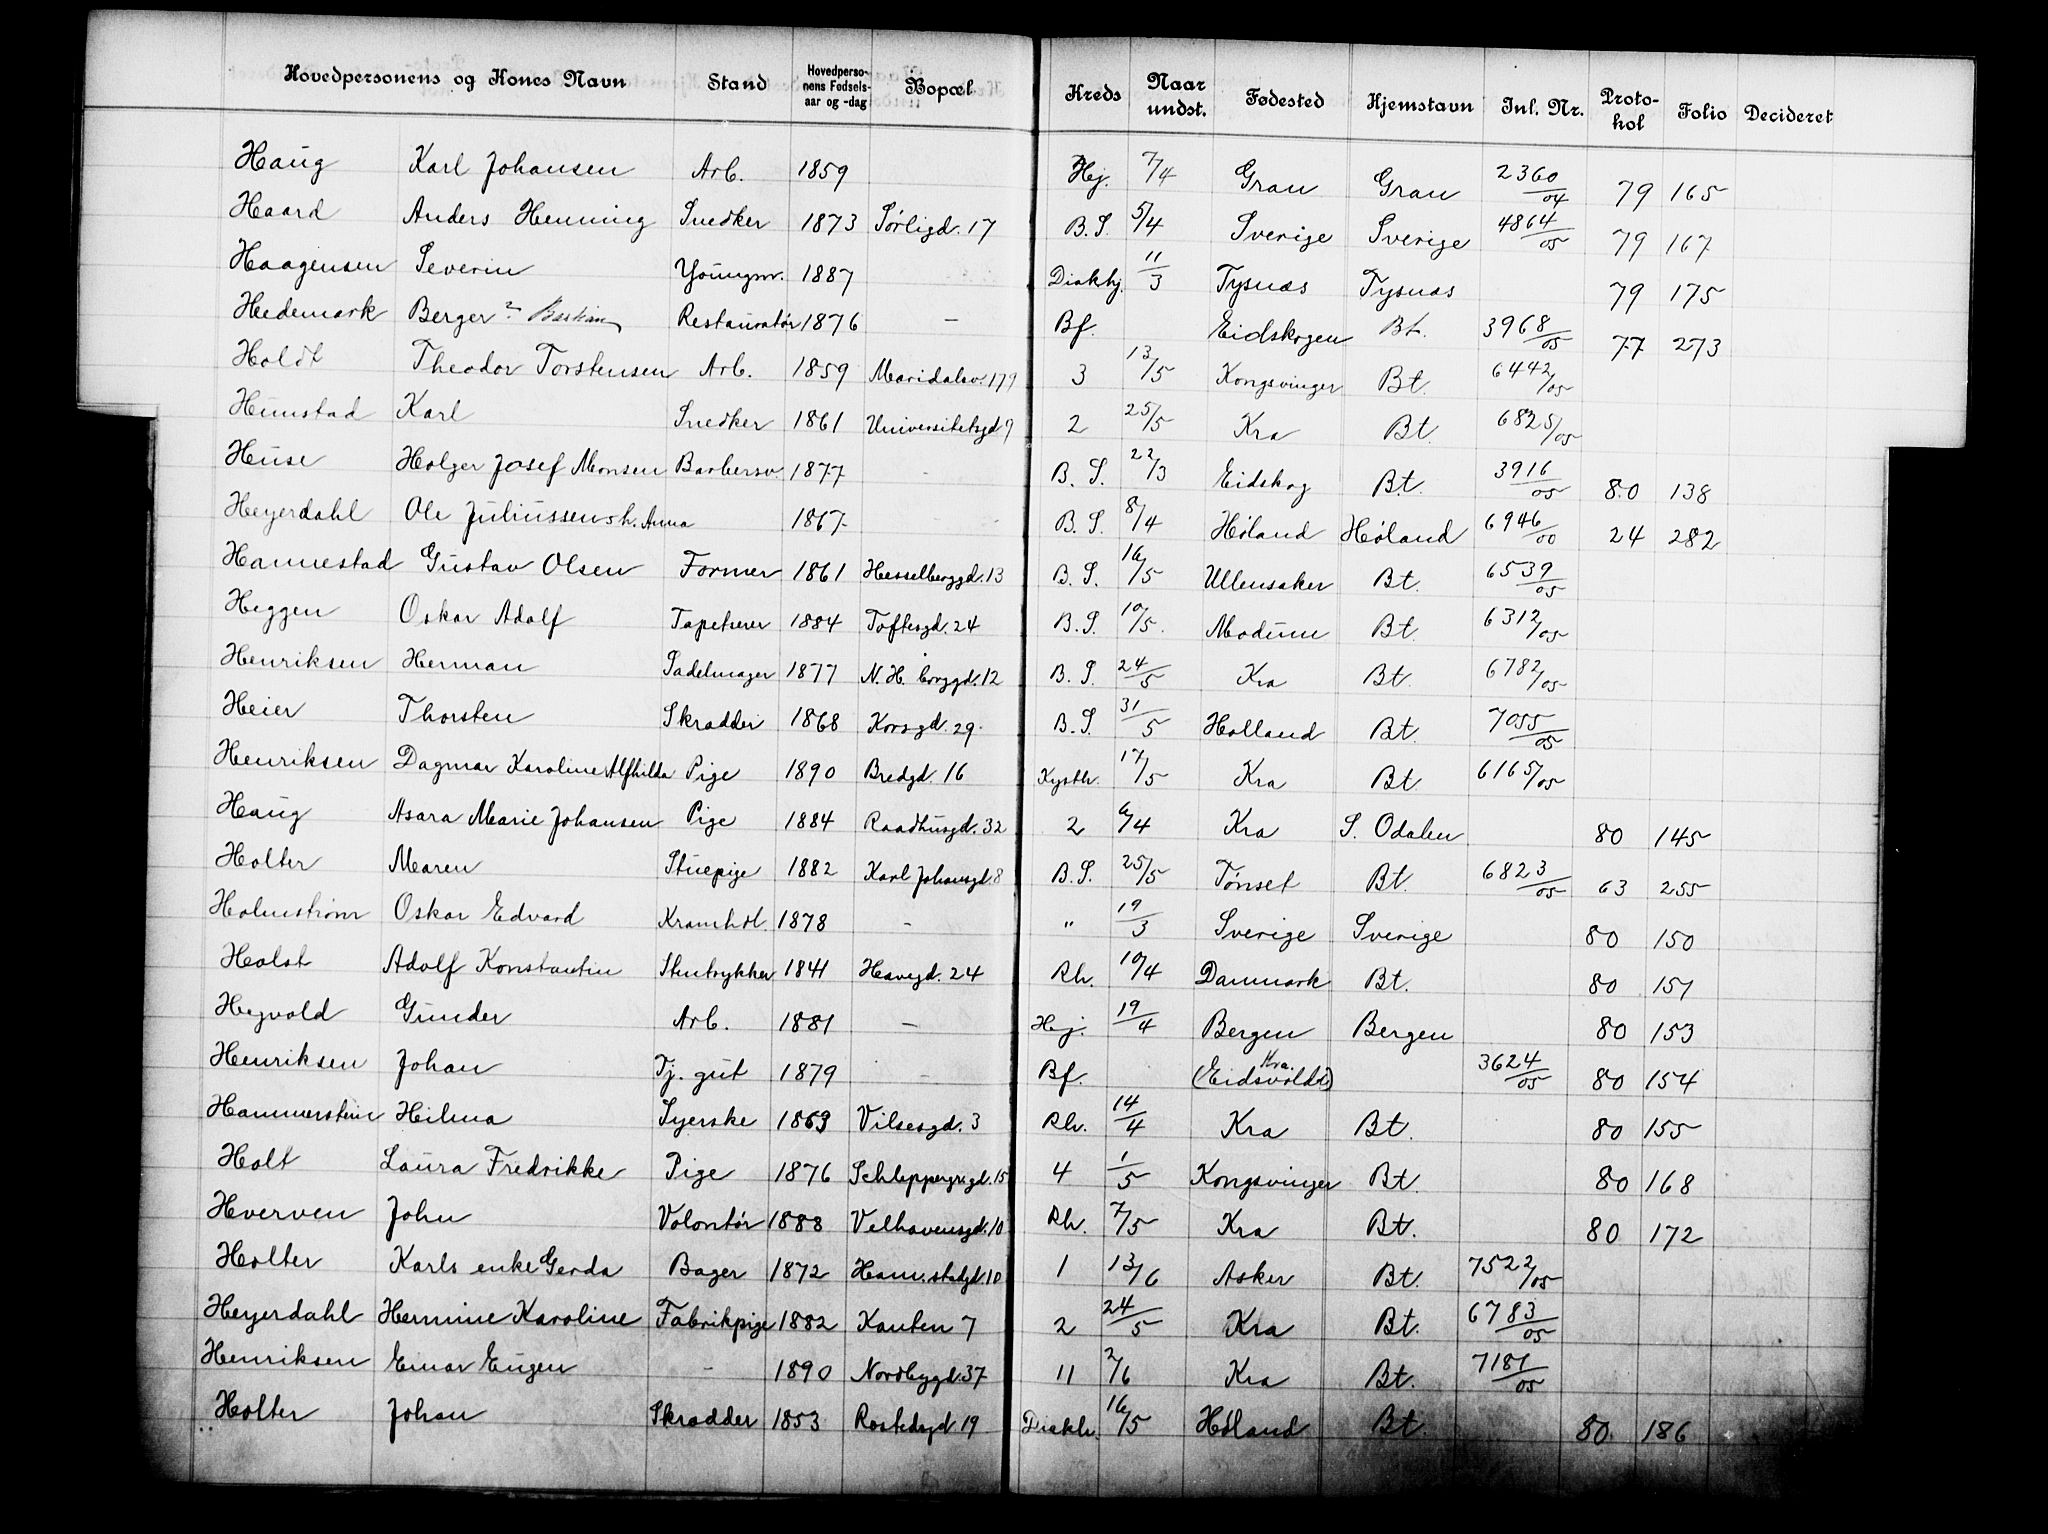 Hovedpersonens og Kones Navn Stand Hovedpersonens Fødselsaar og -dag Bopæl Kreds Naar undst. Fødested Hjemstavn Inl. Nr. Protokol Folio Decideret
Haug Karl Johansen Arb. 1859 Hej. 7/4 Gran Gran 2360/04 79 165
Haard Anders Henning Snedker 1873 Sørligd. 17 B.S. 5/4 Sverige Sverige 4864/05 79 167
Haagensen Severin Youngm. 1887 Diakhj. 11/3 Tysnæs Tysnæs 79 175
Hedemark Berger ? Bastian Restauratør 1876 — Bf. Eidskogen Bt. 3968/05 77 273
Holdt Theodor Torstensen Arb. 1859 Maridalsv. 179 3 13/5 Kongsvinger Bt. 6442/05
Humstad Karl Snedker 1861 Universitetsgd 9 2 25/5 Kra Bt. 6825/05
Huse Holger Josef Monsen Barbersv. 1877 B.S. 22/3 Eidskog Bt. 3916/05 80 138
Heyerdahl Ole Juliussen s h. Anna 1867 B.S. 8/4 Høland Høland 6946/00 24 282
Hannestad Gustav Olsen Former 1861 Hesselberggd. 13 B.S. 16/5 Ullensaker Bt. 6539/05
Heggen Oskar Adolf Tapetserer 1884 Toftesgd. 24 B.S. 10/5. Modum Bt. 6312/05
Henriksen Herman Sadelmager 1877 N. H. 12 B.S. 24/5 Kra Bt. 6782/05
Heier Thorsten Skrædder 1868 Korsgd. 29. B.S. 31/5 Holland Bt. 7055/05
Henriksen Dagmar Karoline Alfhilda Pige 1890 Bredgd. 16 Kysth. 17/5 Kra Bt 6165/05
Haug Asara Marie Johansen Pige 1884 Raadhusgd. 32 2 6/4 Kra S. Odalen 80 145
Holter Maren Stuepige 1882 Karl Johansgd. 8 B.S. 25/5 Tønset Bt. 6823/05 63 255
Holmstrøm Oskar Edvard Kramhdl. 1878 - " 19/3 Sverige Sverige 80 150
Holst Adolf Konstantin Stentrykker 1841 Havegd. 24 Rh. 10/4 Danmark Bt. 80 151
Hegvold Gunder Arb. 1881 — Hej. 19/4 Bergen Bergen 80 153
Henriksen Johan Tj. gut 1879 - Bf. Kra. (Eidsvold) 3624/05 80 154
Hammerstein Hilma Syerske 1869 Vilsesgd. 3 Rh. 14/4 Kra Bt. 80 155
Holt Laura Fredrikke Pige 1876 Schleppegrsgd. 15 4 1/5 Kongsvinger Bt. 80 168
Hverven John Volontør 1888 Velhavensgd. 10 Rh. 7/5 Kra Bt. 80 172
Holter Karls enke Gerda Bager 1872 Ham.stadgd. 10 1 13/6 Asker Bt. 7522/05
Heyerdahl Hermine Karoline Fabrikpige 1882 Kanten 7 2 24/5 Kra Bt. 6783/05
Henriksen Einar Eugen - 1890 Nordbygd. 37 11 2/6 Kra Bt. 7181/05
Holter Johan Skrædder 1853 Rostedsgd 19 Diakh. 16/5 Høland Bt. 80. 186